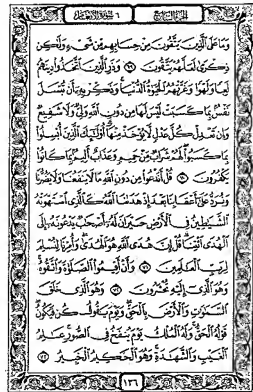 الجزء السابع ٦ سورة الأنعام
وَمَا عَلَى الَّذِينَ يَتَّقُونَ مِنْ حِسَابِهِم مِّن شَيْءٍ وَلَٰكِن
ذِكْرَىٰ لَعَلَّهُمْ يَتَّقُونَ ٦٩ وَذَرِ الَّذِينَ اتَّخَذُوا دِينَهُمْ
لَعِبًا وَلَهْوًا وَغَرَّتْهُمُ الْحَيَاةُ الدُّنْيَا وَذَكِّرْ بِهِ أَن تُبْسَلَ
نَفْسٌ بِمَا كَسَبَتْ لَيْسَ لَهَا مِن دُونِ اللَّهِ وَلِيٌّ وَلَا شَفِيعٌ
وَإِن تَعْدِلْ كُلَّ عَدْلٍ لَّا يُؤْخَذْ مِنْهَا أُولَٰئِكَ الَّذِينَ أُبْسِلُوا
بِمَا كَسَبُوا لَهُمْ شَرَابٌ مِّنْ حَمِيمٍ وَعَذَابٌ أَلِيمٌ بِمَا كَانُوا
يَكْفُرُونَ ٧٠ قُلْ أَنَدْعُوا مِن دُونِ اللَّهِ مَا لَا يَنفَعُنَا وَلَا يَضُرُّنَا
وَنُرَدُّ عَلَىٰ أَعْقَابِنَا بَعْدَ إِذْ هَدَانَا اللَّهُ كَالَّذِي اسْتَهْوَتْهُ
الشَّيَاطِينُ فِي الْأَرْضِ حَيْرَانَ لَهُ أَصْحَابٌ يَدْعُونَهُ إِلَى
الْهُدَى ائْتِنَا قُلْ إِنَّ هُدَى اللَّهِ هُوَ الْهُدَىٰ وَأُمِرْنَا لِنُسْلِمَ
لِرَبِّ الْعَالَمِينَ ٧١ وَأَنْ أَقِيمُوا الصَّلَاةَ وَاتَّقُوهُ
وَهُوَ الَّذِي إِلَيْهِ تُحْشَرُونَ ٧٢ وَهُوَ الَّذِي خَلَقَ
السَّمَاوَاتِ وَالْأَرْضَ بِالْحَقِّ وَيَوْمَ يَقُولُ كُن فَيَكُونُ
قَوْلُهُ الْحَقُّ وَلَهُ الْمُلْكُ يَوْمَ يُنفَخُ فِي الصُّورِ عَالِمُ
الْغَيْبِ وَالشَّهَادَةِ وَهُوَ الْحَكِيمُ الْخَبِيرُ ٧٣
١٣٦